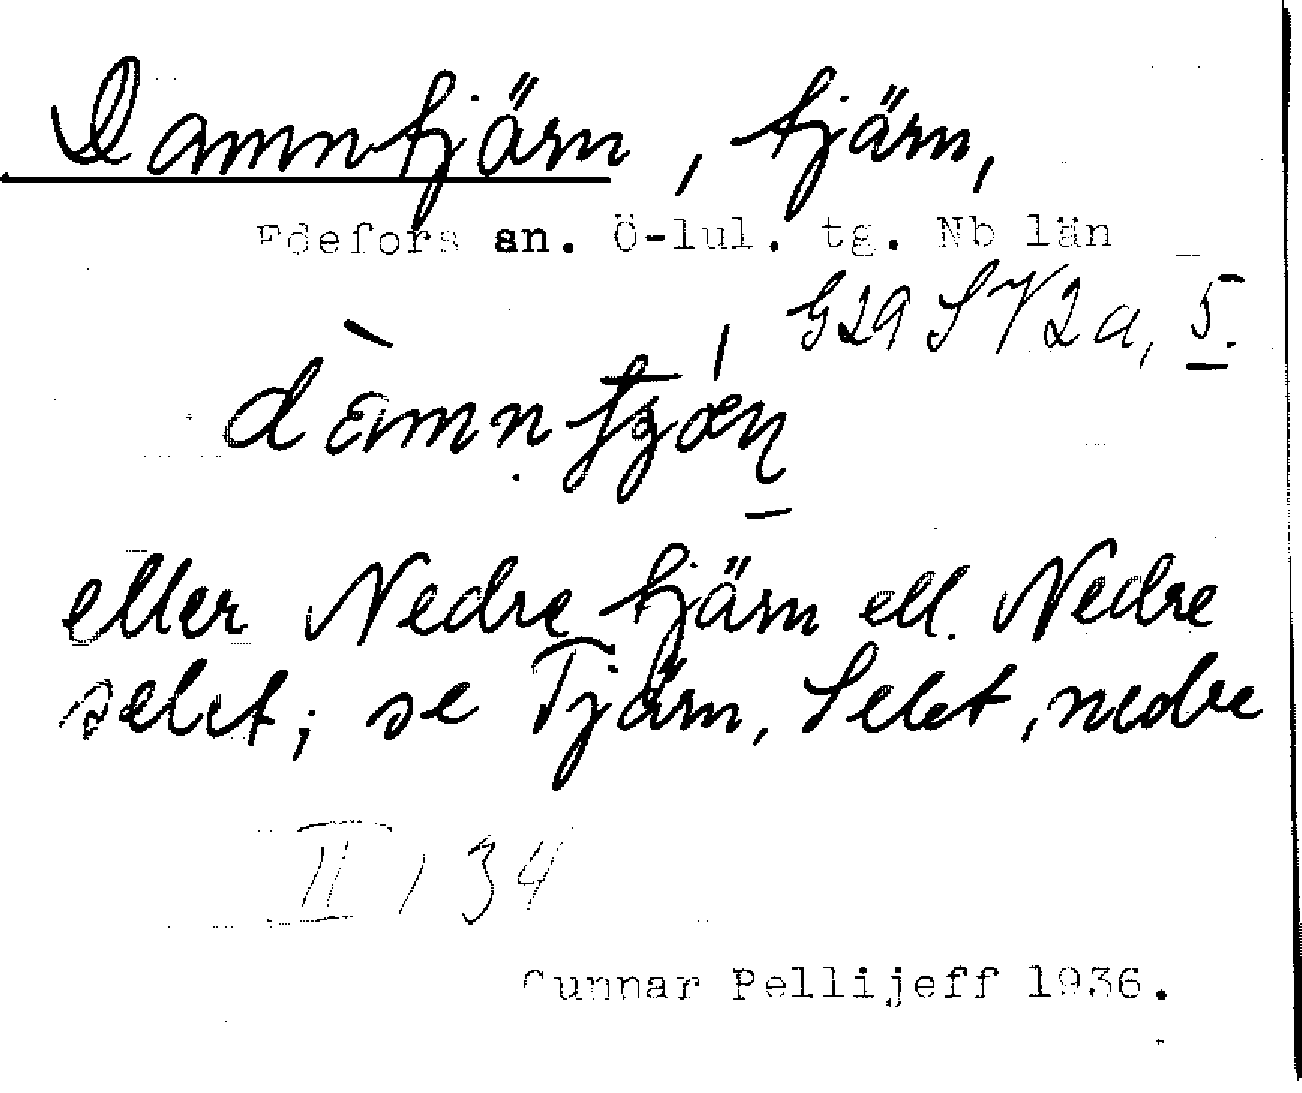 Damntjärn, tjärn,
Edefors sn. Ö-lul. tg. Nb län
G29 SV2a, 5.
eller Nedre tjärn ell. Nedre
selet; se Tjärn, Selet, nedre
II / 34
Gunnar Pellijeff 1936.